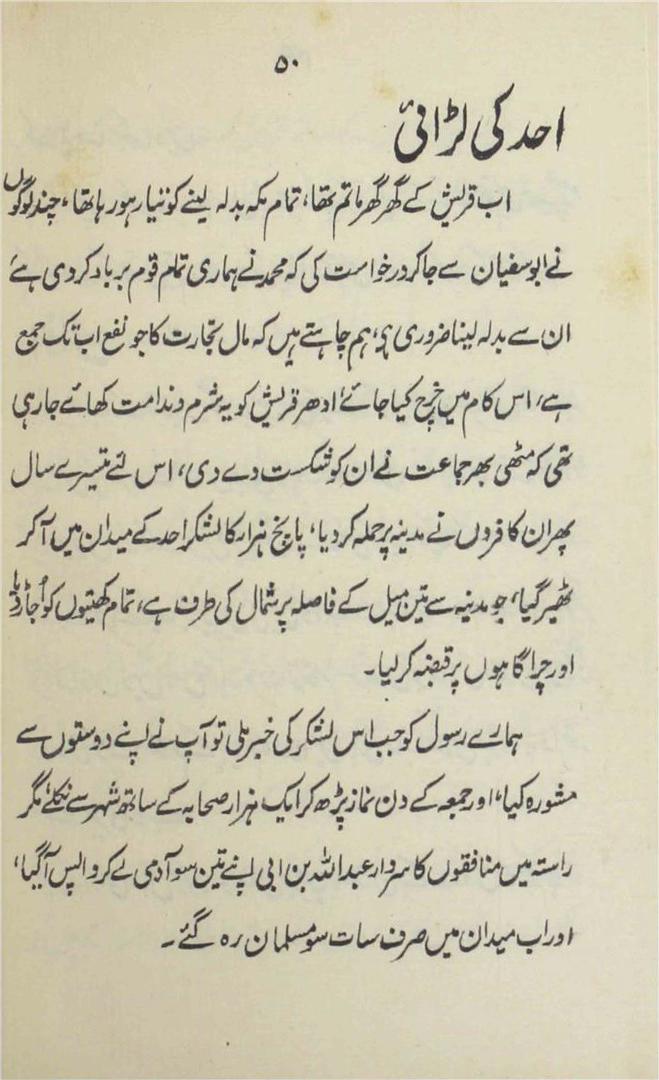 ۵۰
احد کی لڑائی
اب قریش کے گھر گھر ماتم تھا، تمام مکہ بدلہ لینے کو تیار ہو رہا تھا، چند لوگوں
نے ابو سفیان سے جا کر درخواست کی کہ محمد نے ہماری تمام قوم برباد کر دی ہے
ان سے بدلہ لینا ضروری ہی، ہم چاہتے ہیں کہ مال تجارت کا جو نفع اب تک جمع
ہے، اس کام میں خرچ کیا جائے ادھر قریش کو یہ شرم و ندامت کھائے جا رہی
تھی کہ مٹھی بھر جماعت نے ان کو شکست دے دی، اس لئے تیسرے سال
پھر ان کافروں نے مدینہ پر حملہ کر دیا، پانچ ہزار کا لشکر احد کے میدان میں آ کر
ٹھیر گیا، جو مدینہ سے تین میل کے فاصلہ پر شمال کی طرف ہے، تمام کھیتوں کو اُجاڑ دیا
اور چراگاہوں پر قبضہ کر لیا۔
ہمارے رسول کو جب اس لشکر کی خبر ملی تو آپ نے اپنے دوستوں سے
مشورہ کیا، اور جمعہ کے دن نماز پڑھ کر ایک ہزار صحابہ کے ساتھ شہر سے نکلے، مگر
راستہ میں منافقوں کا سردار عبداللہ بن ابی اپنے تین سو آدمی لے کر واپس آ گیا،
اور اب میدان میں صرف سات سو مسلمان رہ گئے۔